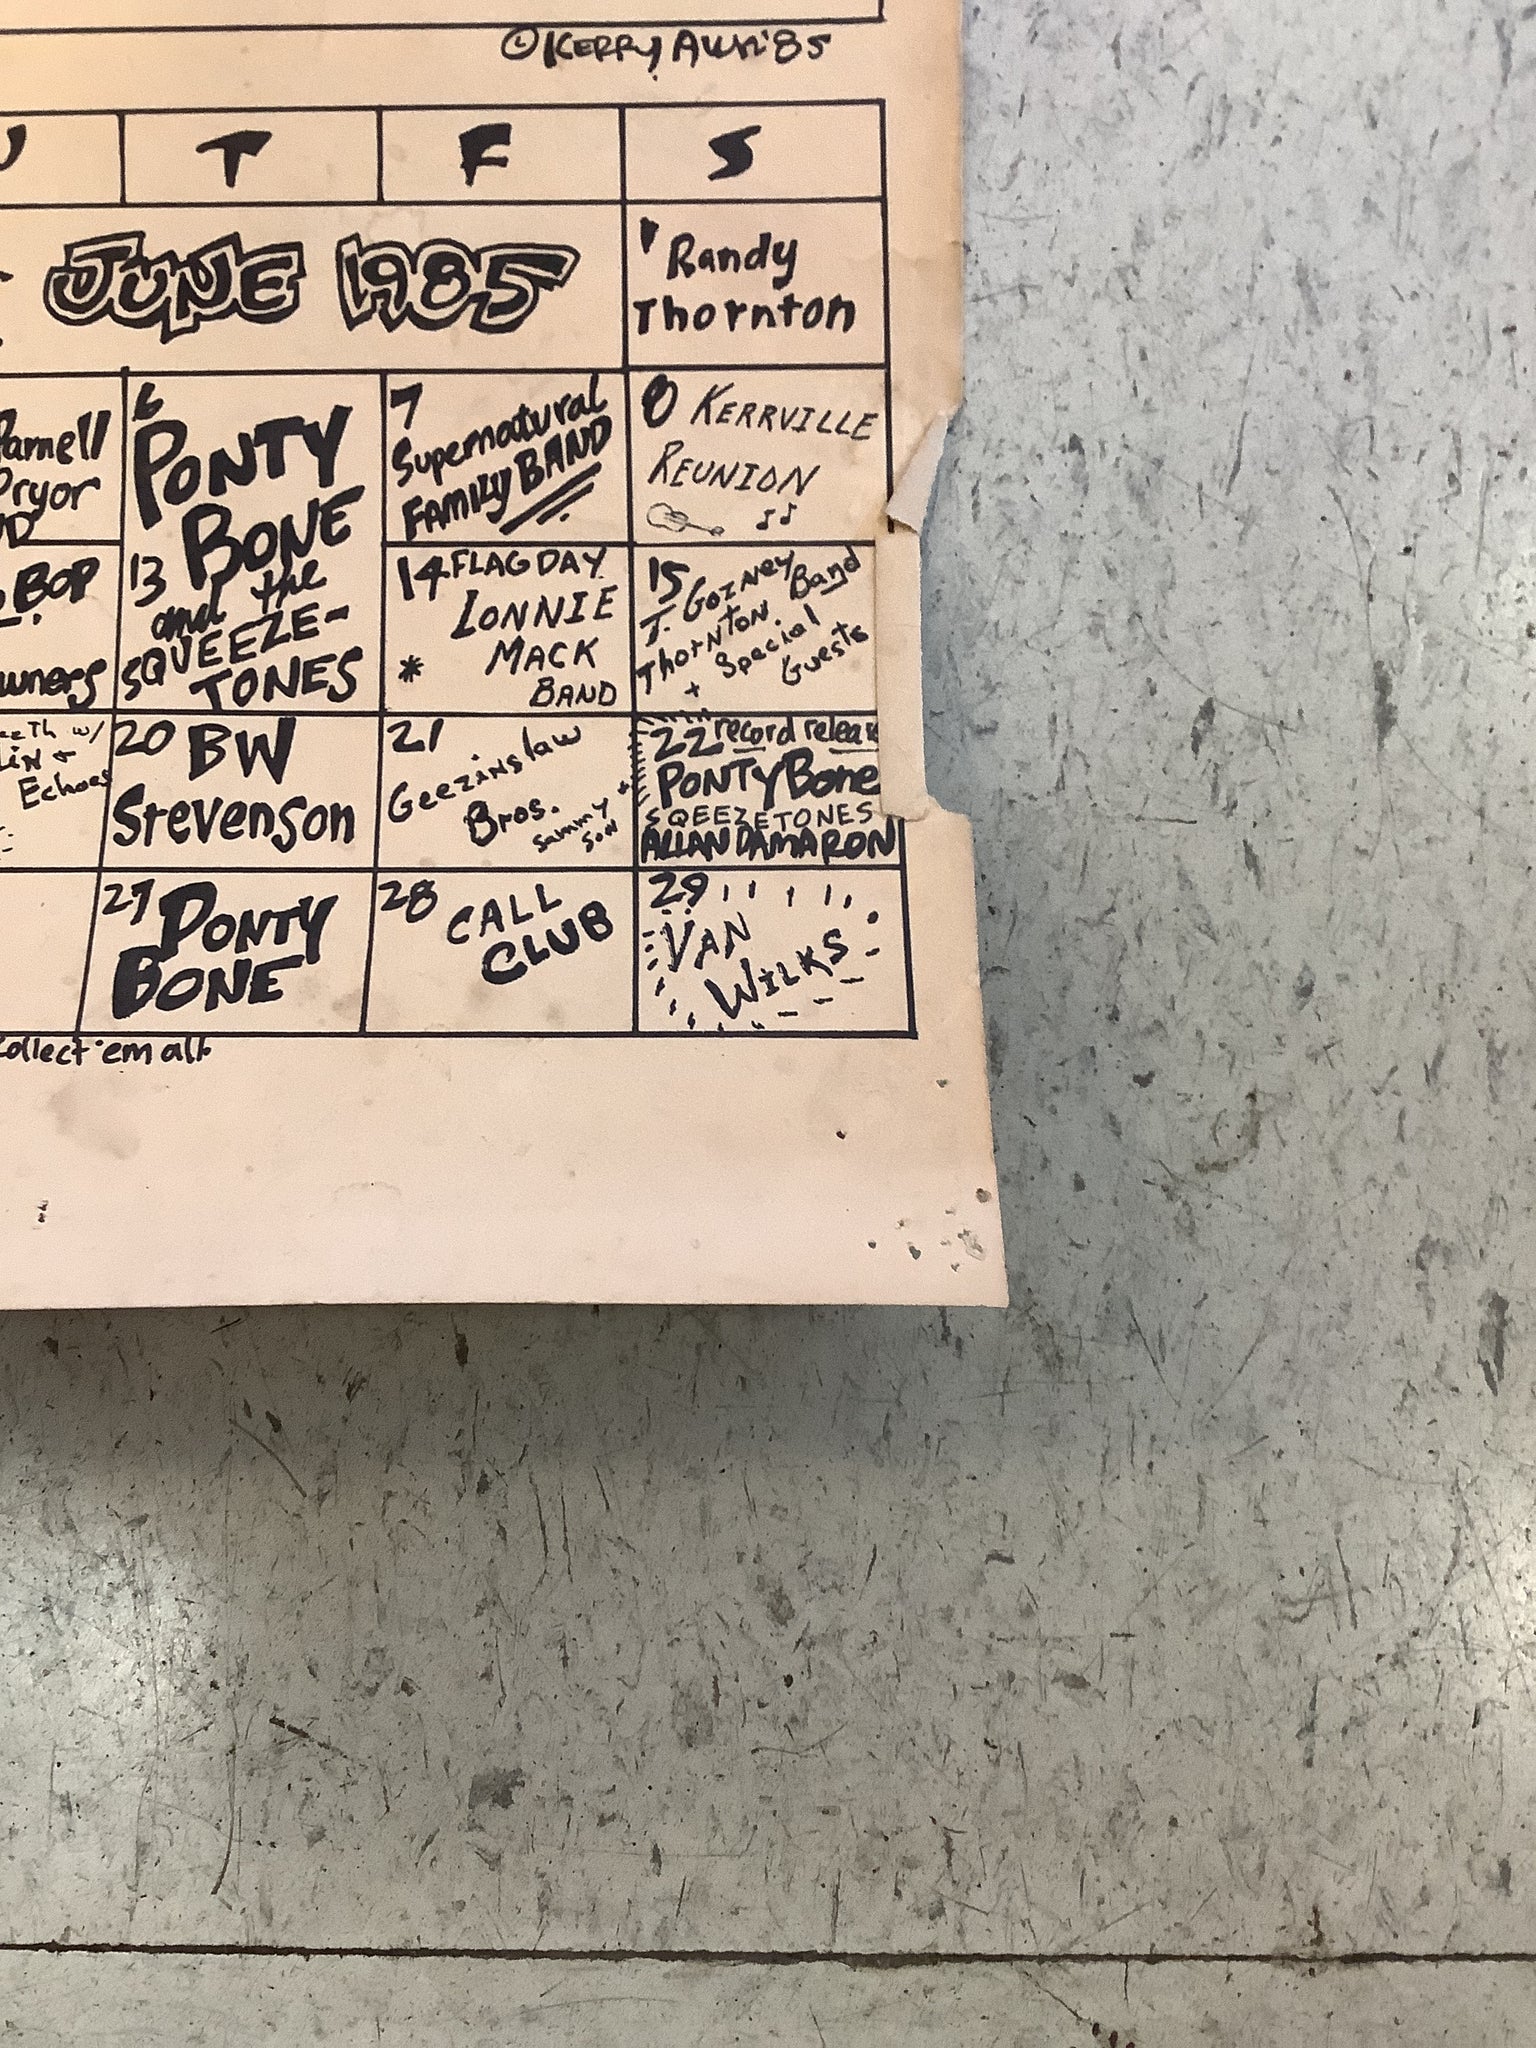 ©KERRY AWN'85
T F S
JUNE 1985
1 Randy
Thornton
Parnell
Pryor
6 PONTY
BONE
13 and the
SQUEEZE-
TONES
7
Supernatural
FAMILY BAND
8 KERRVILLE
REUNION
BOP
14 FLAG DAY
LONNIE
* MACK
BAND
15
T. GOZNEY
THORNTON Band
+ Special
Guests
w/
Echoes
20 BW
Stevenson
21
Geezinslaw
Bros. +
Sammy
Son
22 record release
PONTY Bone
SQEEZETONES
ALLAN DAMARON
27 PONTY
BONE
28 CALL
CLUB
29
VAN
WILKS
Collect 'em all